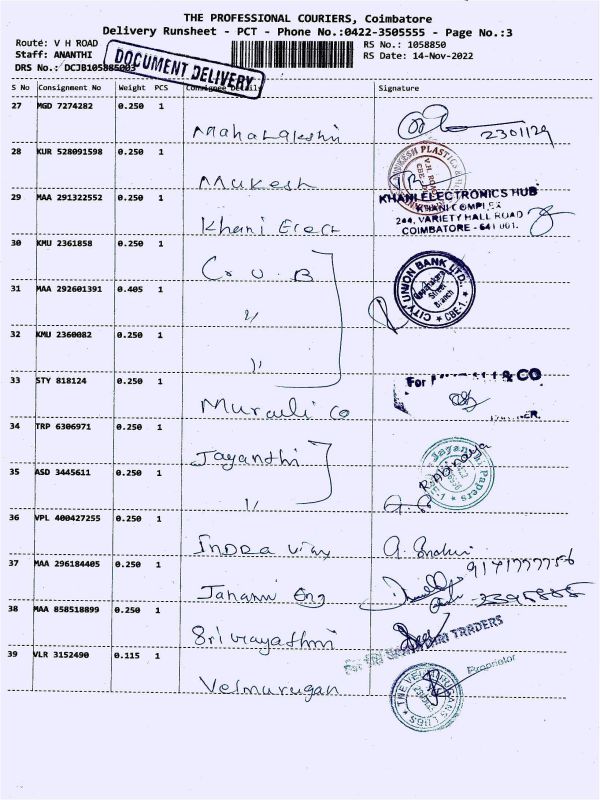 THE PROFESSIONAL COURIERS, Coimbatore
Delivery Runsheet - PCT - Phone No.:0422-3505555 - Page No.:3
Route: V H ROAD
RS No.: 1058850
Staff: ANANTHI
RS Date: 14-Nov-2022
DRS No.: DCJB105885003
DOCUMENT DELIVERY
S No Consignment No Weight PCS Consignee Details Signature
27 MGD 7274282 0.250 1
Mahalakshmi
2301129
28 KUR 528091598 0.250 1
Mukesh
MUKESH PLASTICS
V.H. ROAD
29 MAA 291322552 0.250 1
Khani Elect
KHANI ELECTRONICS HUB
KHANI COMPLEX
244, VARIETY HALL ROAD
COIMBATORE - 641 001.
30 KMU 2361858 0.250 1
C.U.B
CITY UNION BANK LTD.
Street
Branch
CBE-1.
31 MAA 292601391 0.405 1
"
32 KMU 2360082 0.250 1
"
33 STY 818124 0.250 1
Murauli Co
For & CO
34 TRP 6306971 0.250 1
Jayanthi
Jayanthi Papers
R.Abinaya
35 ASD 3445611 0.250 1
"
36 VPL 400427255 0.250 1
Indra Vijay
37 MAA 296184405 0.250 1
Janani Eng
9171777756
38 MAA 858518899 0.250 1
Sri Vijayathmi
TRADERS
Proprietor
39 VLR 3152490 0.115 1
Velmurugan